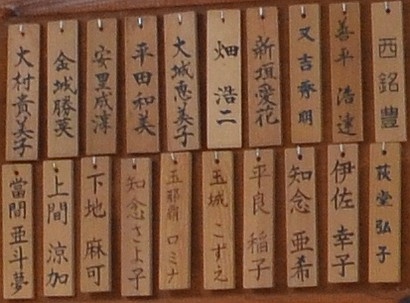 西銘 豊
善平 浩達
又吉 秀明
新垣 愛花
畑 浩二
大城恵美子
平田和美
安里成淳
金城勝英
大村貴美子
荻堂弘子
伊佐 幸子
知念 亜希
平良 稲子
玉城 こずえ
玉那覇 ロミナ
知念さよ子
下地 麻可
上間 涼加
當間 亜斗夢